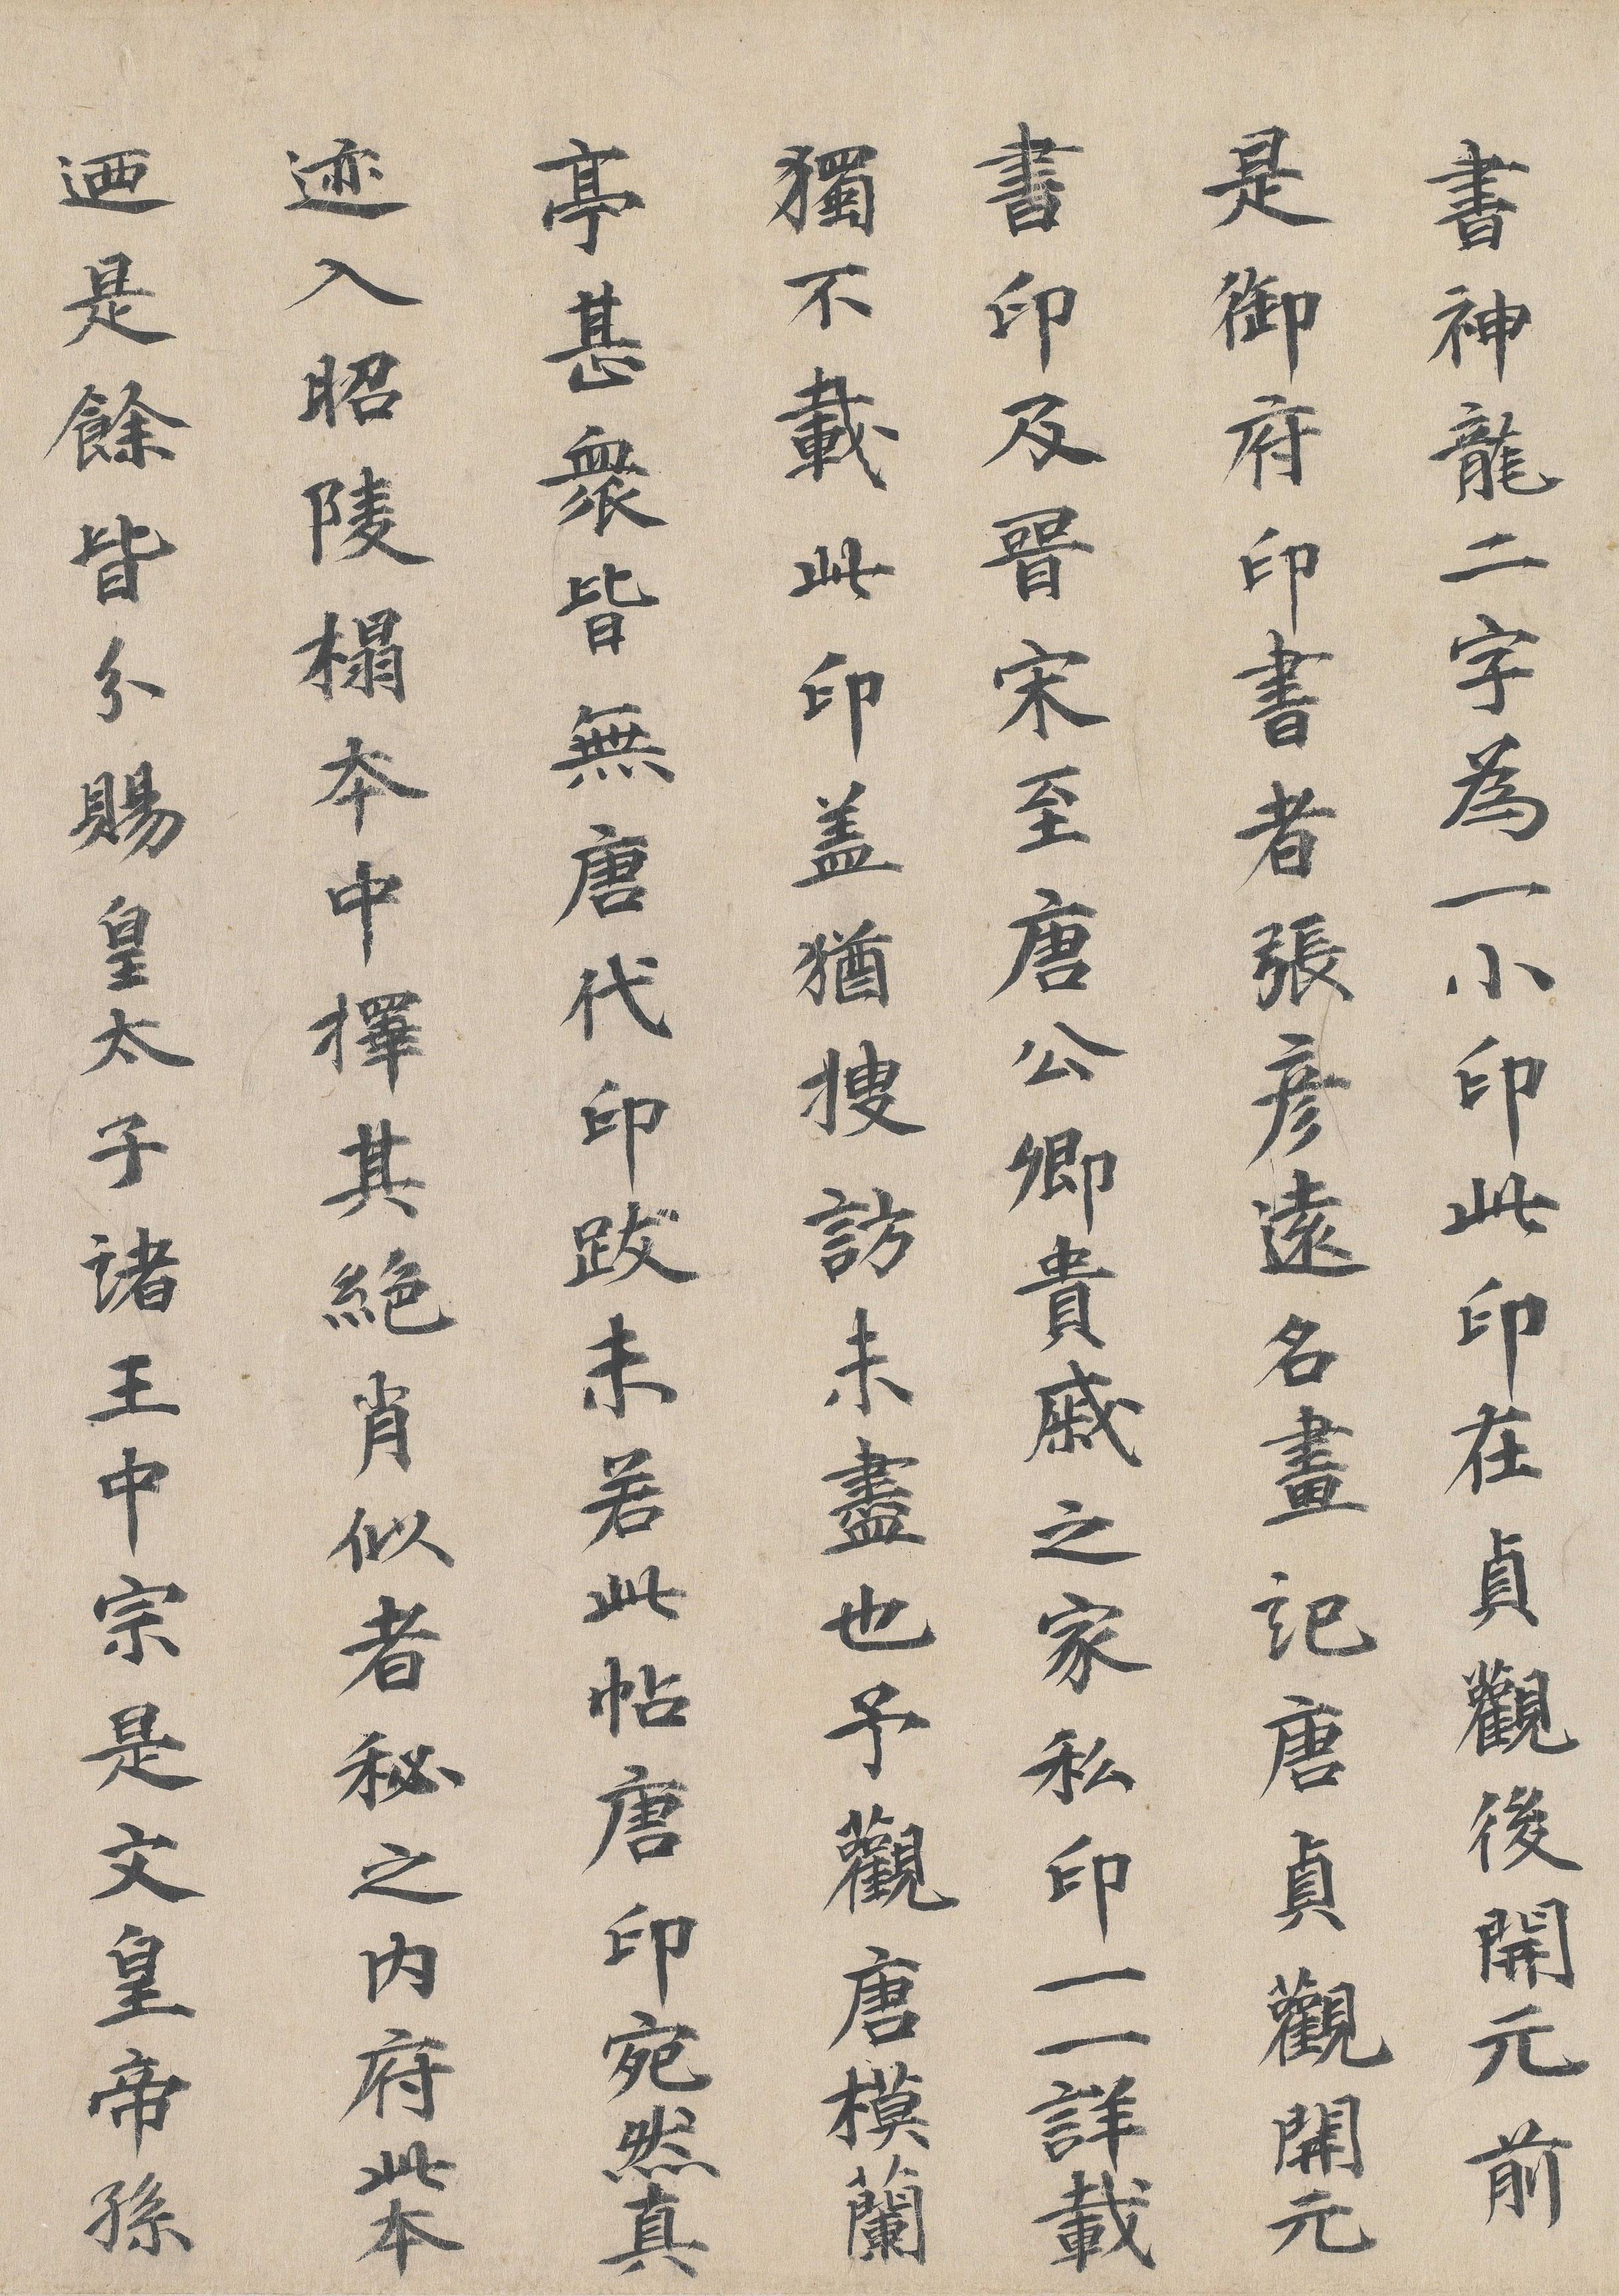 書神龍二字為一小印此印在貞觀後開元前
是御府印書者張彥遠名畫記唐貞觀開元
書印及晉宋至唐公卿貴戚之家私印一一詳載
獨不載此印盖猶搜訪未盡也予觀唐模蘭
亭甚衆皆無唐代印跋未若此帖唐印宛然真
迹入昭陵榻本中擇其絕肖似者秘之内府此本
迺是餘皆分賜皇太子諸王中宗是文皇帝孫